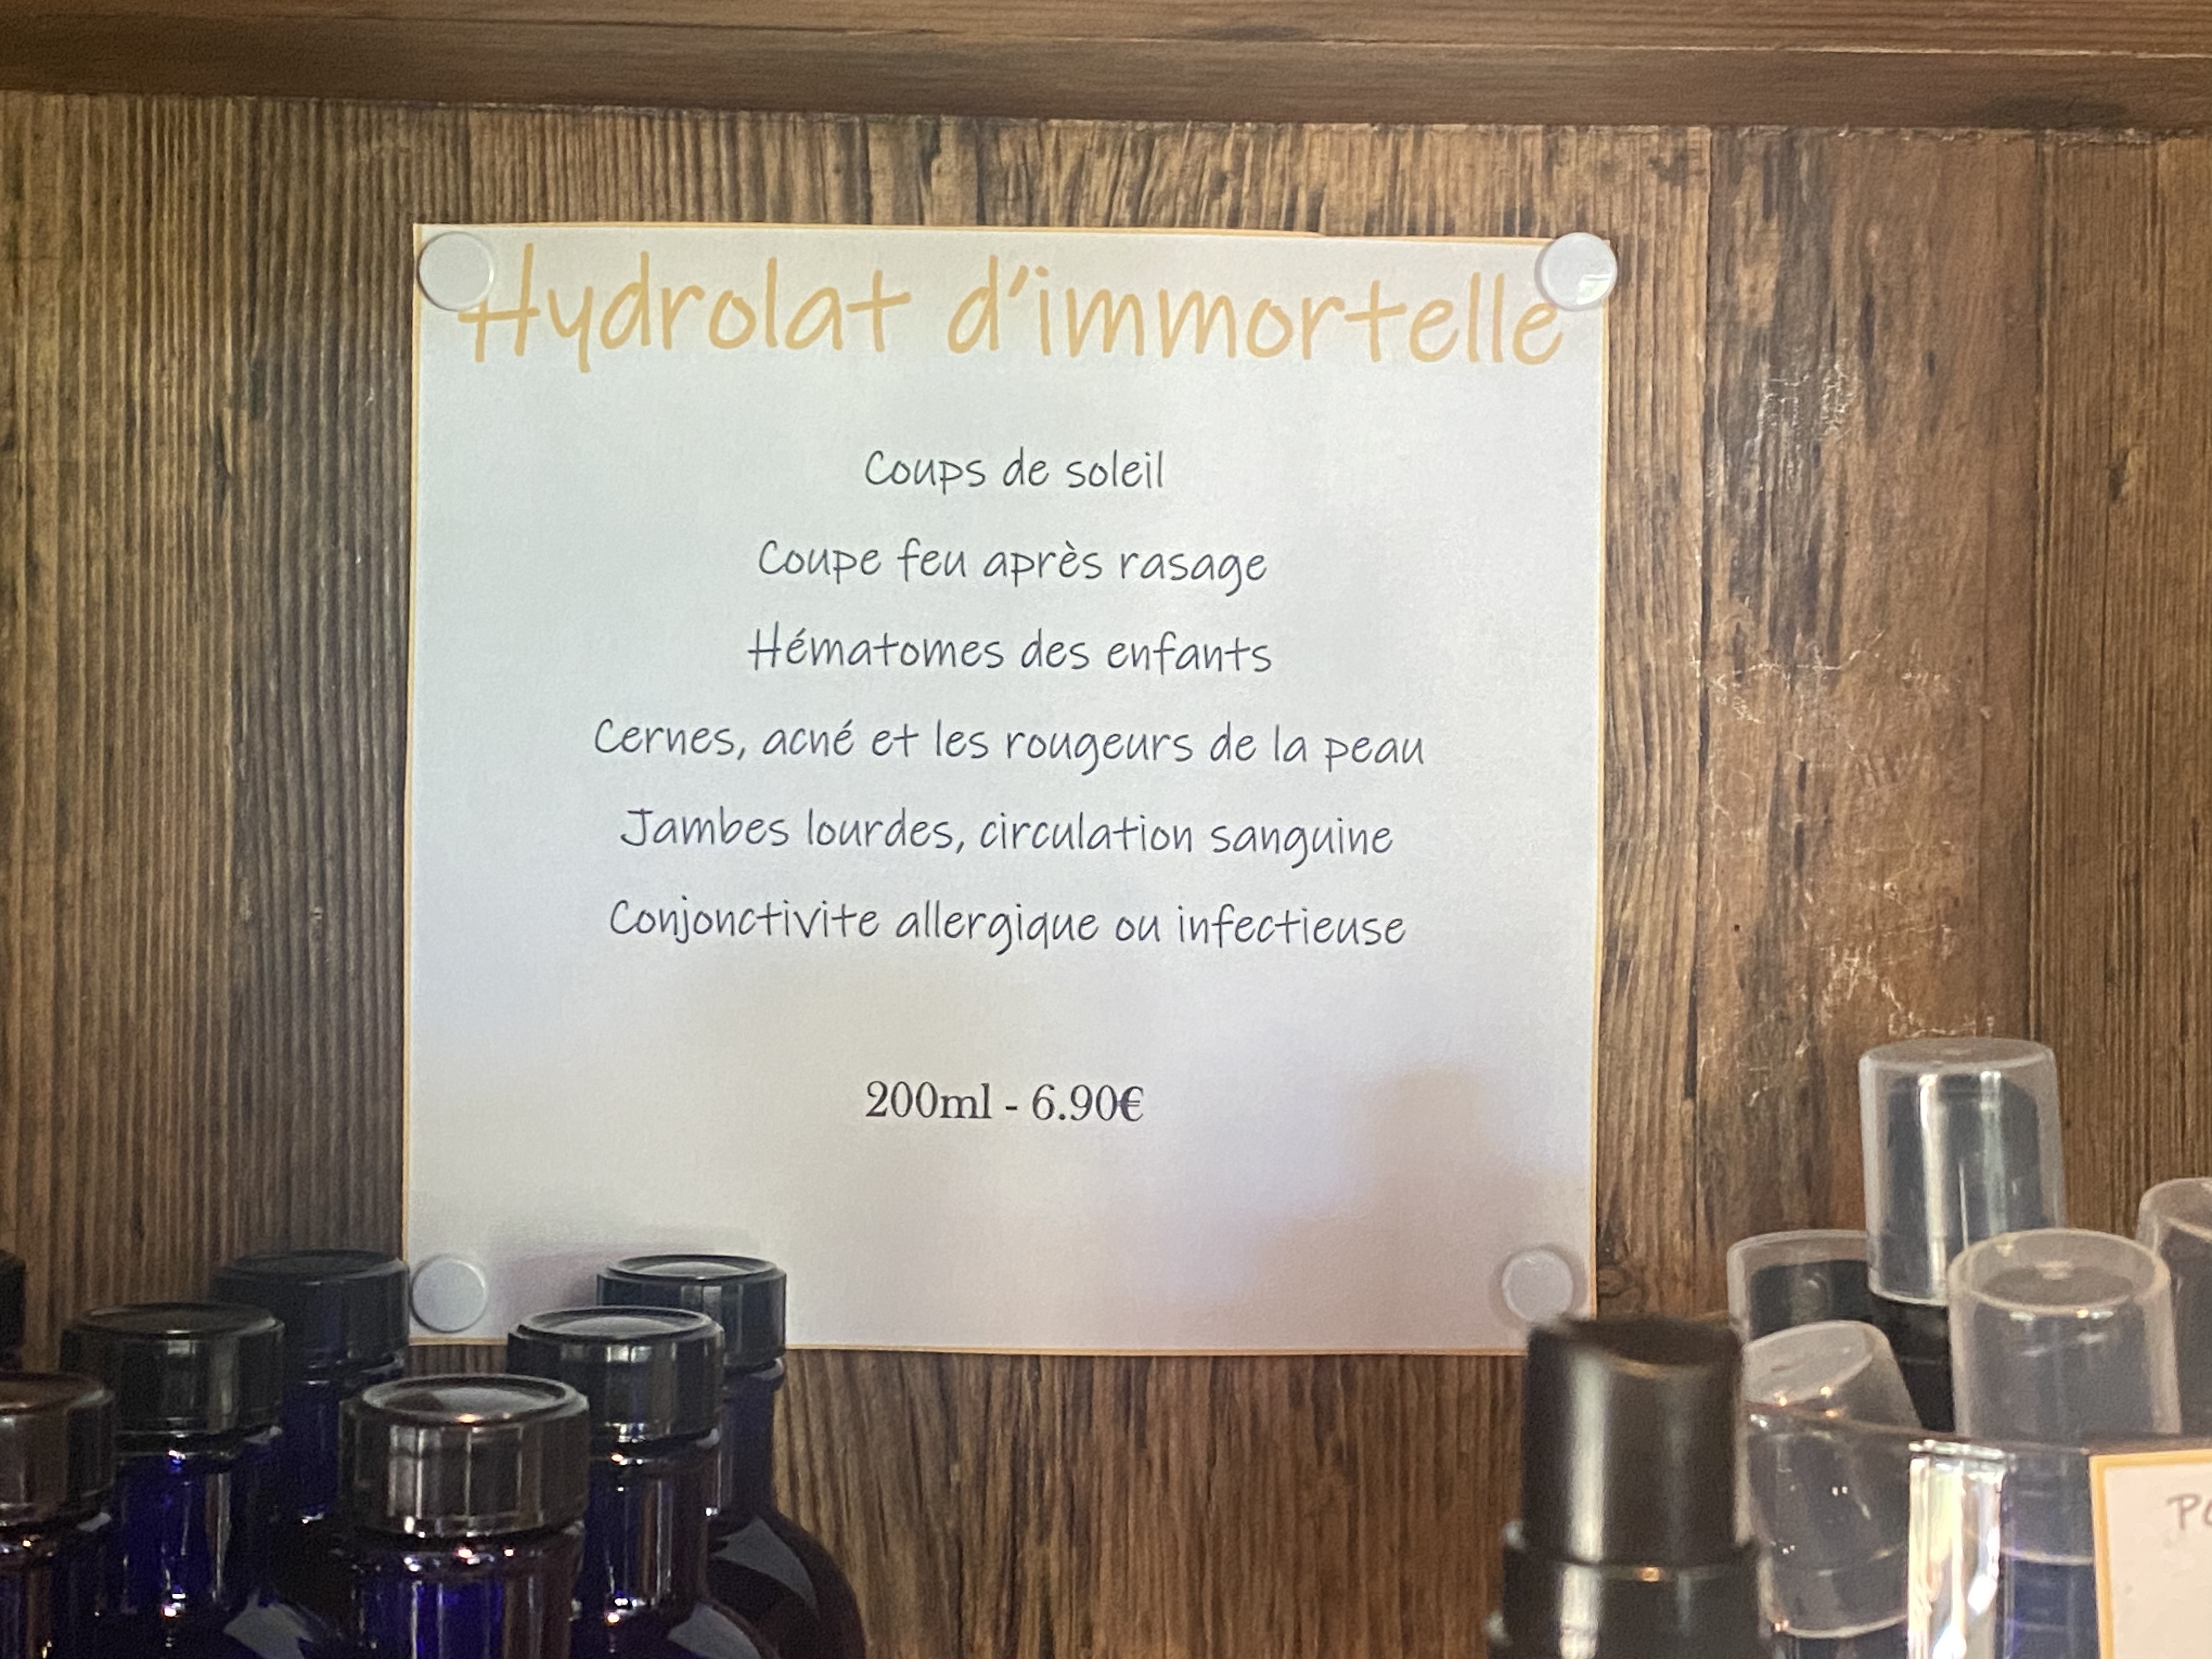 Hydrolat d'immortelle
Coups de soleil
Coupe feu après rasage
Hématomes des enfants
Cernes, acné et les rougeurs de la peau
Jambes lourdes, circulation sanguine
Conjonctivite allergique ou infectieuse
200ml - 6.90€